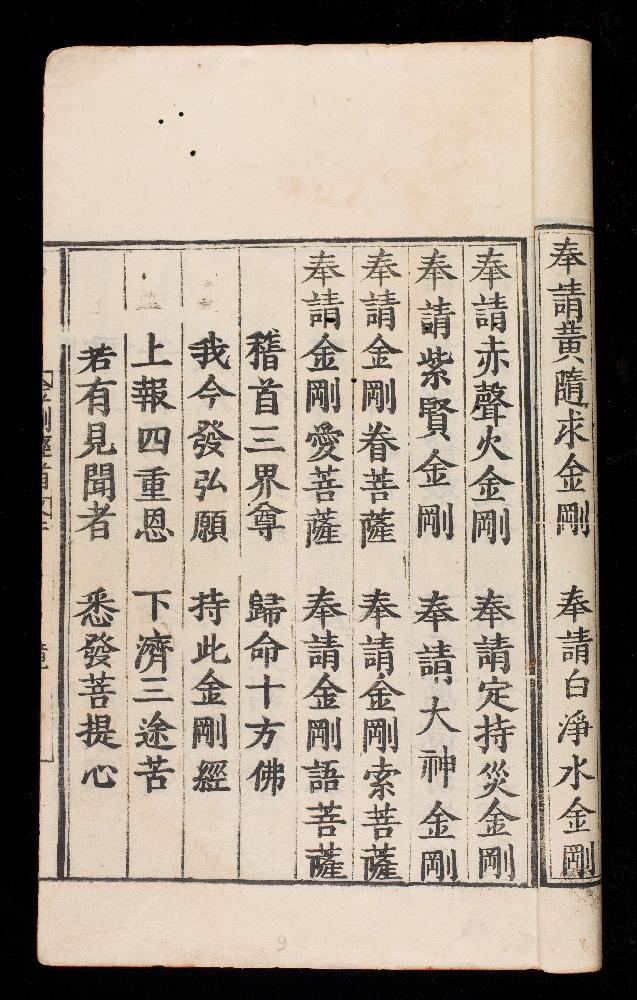 奉請黃隨求金剛 奉請白淨水金剛
奉請赤聲火金剛 奉請定持災金剛
奉請紫賢金剛 奉請大神金剛
奉請金剛眷菩薩 奉請金剛索菩薩
奉請金剛愛菩薩 奉請金剛語菩薩
稽首三界尊 歸命十方佛
我今發弘願 持此金剛經
上報四重恩 下濟三途苦
若有見聞者 悉發菩提心
9